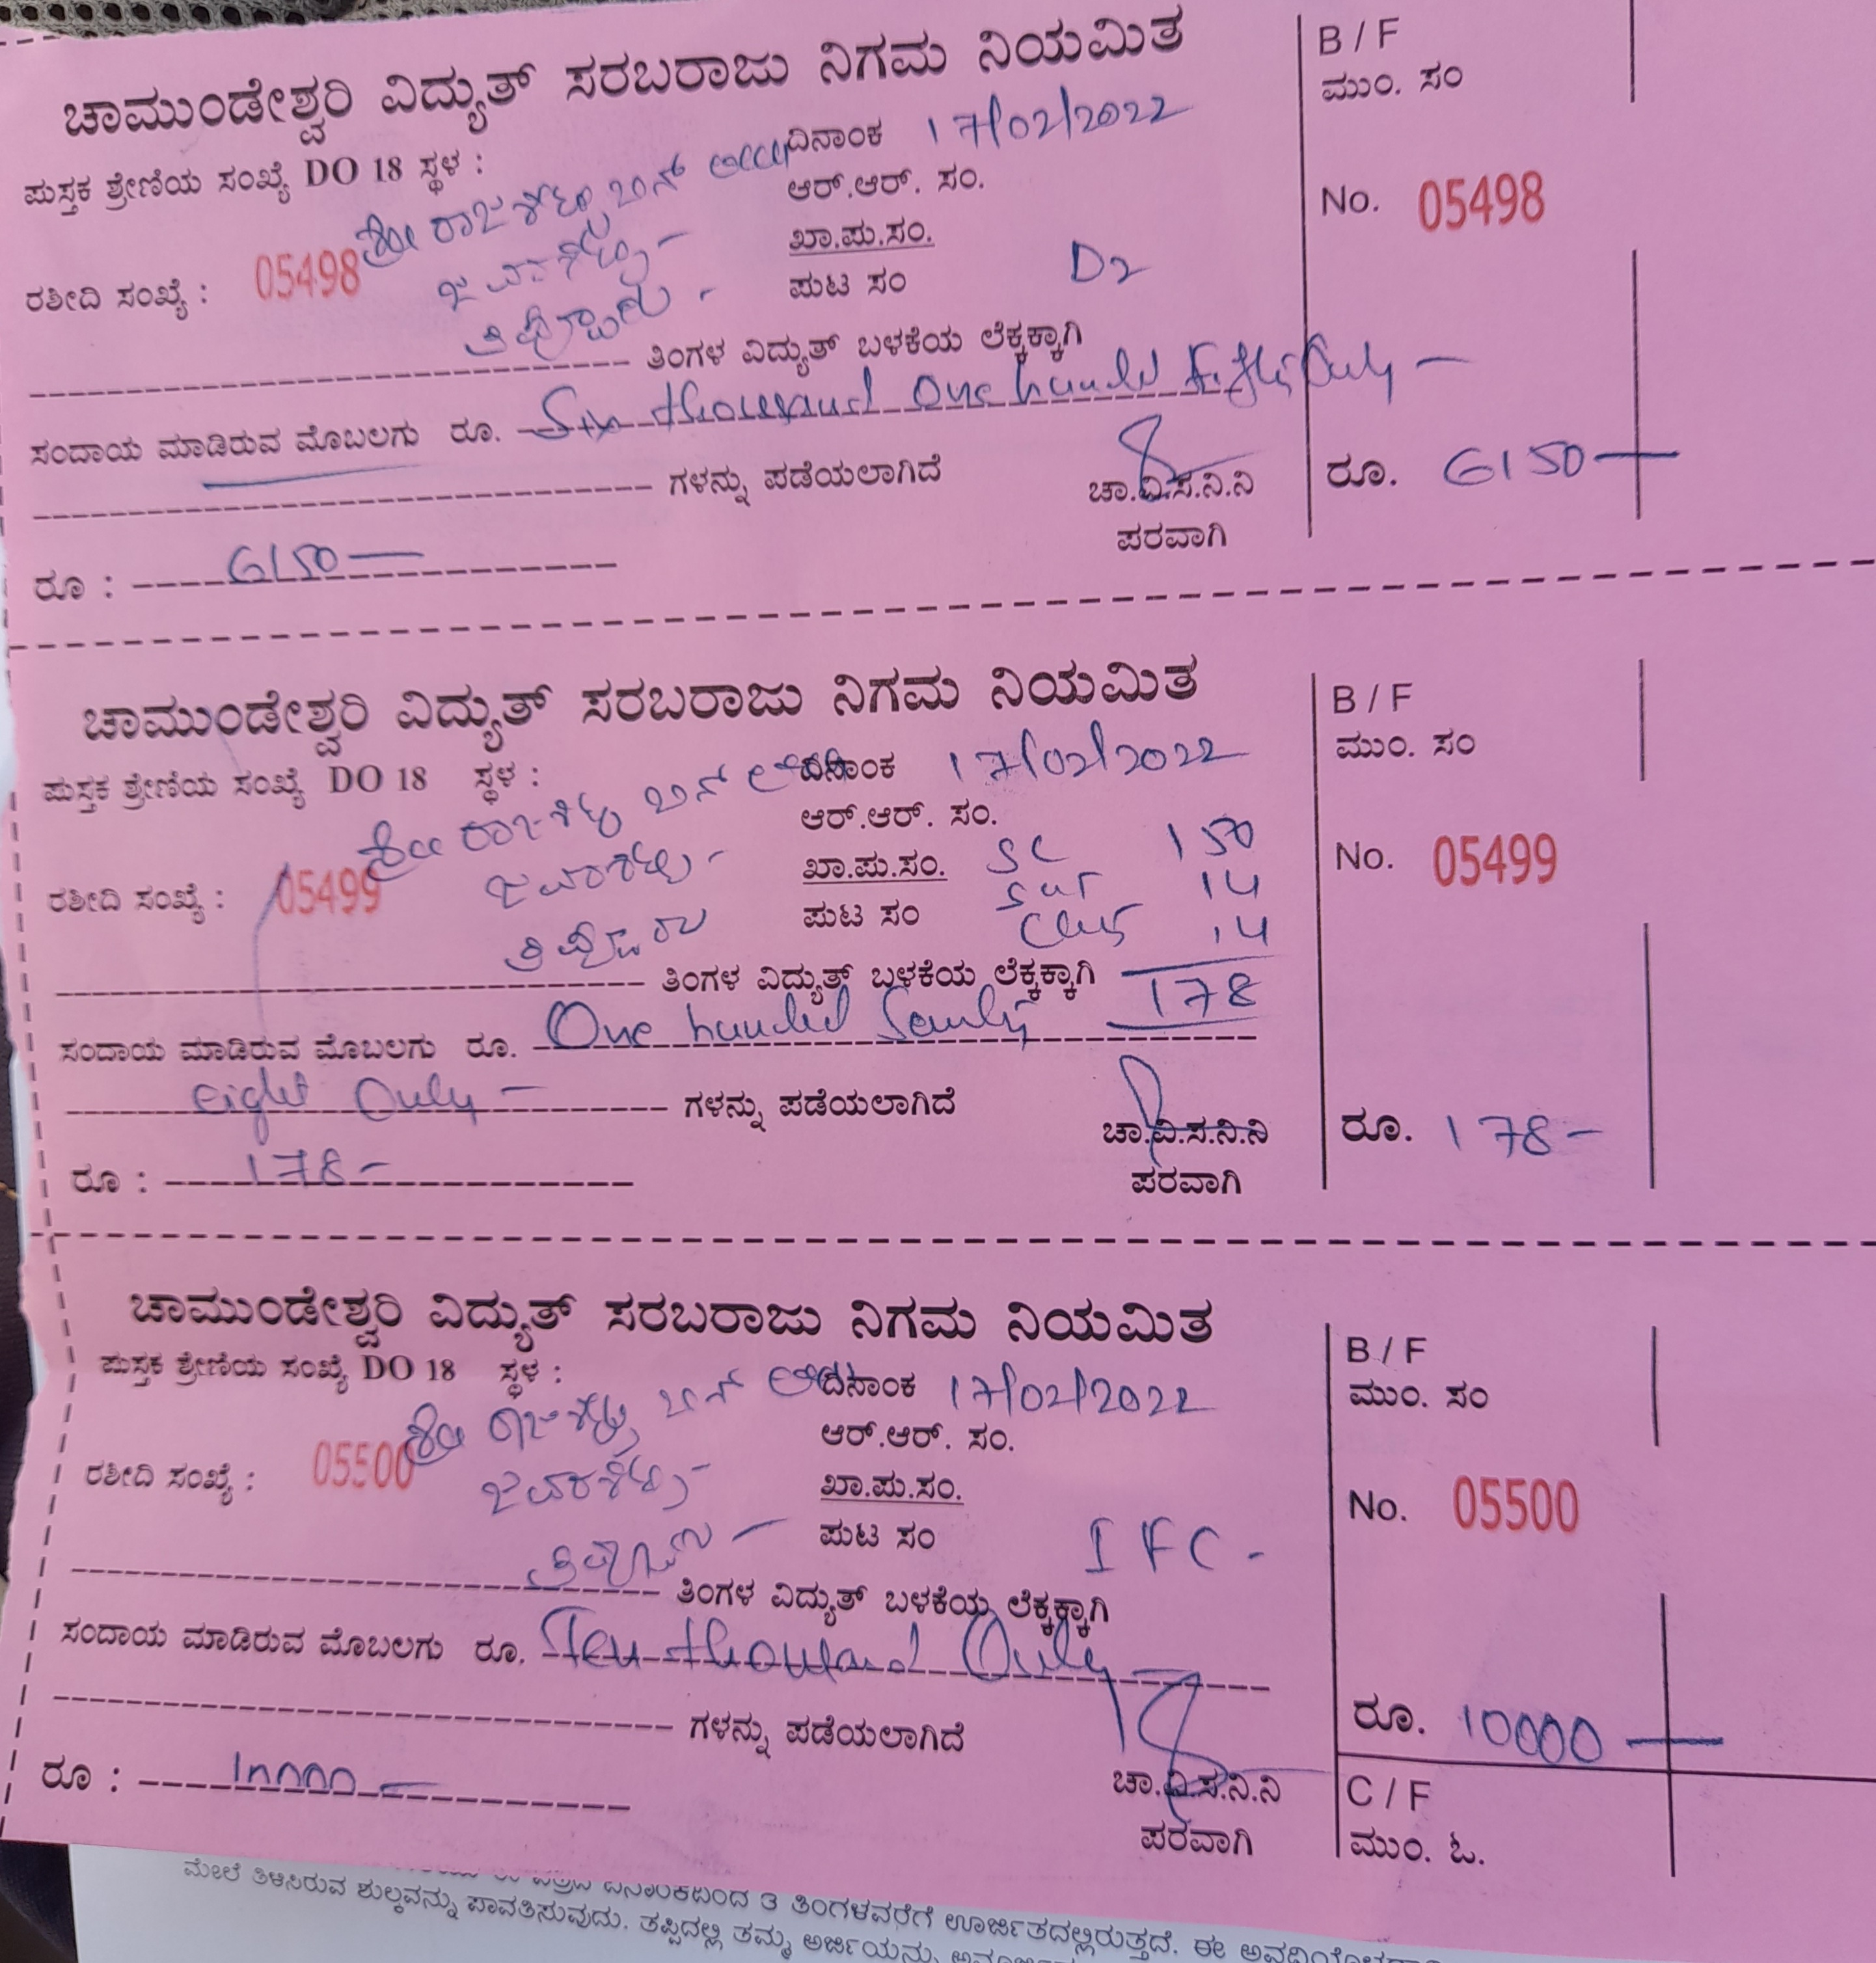 ಚಾಮುಂಡೇಶ್ವರಿ ವಿದ್ಯುತ್ ಸರಬರಾಜು ನಿಗಮ ನಿಯಮಿತ
ಪುಸ್ತಕ ಶ್ರೇಣಿಯ ಸಂಖ್ಯೆ DO 18 ಸ್ಥಳ :
ದಿನಾಂಕ 17/02/2022
ಆರ್.ಆರ್. ಸಂ.
ಶ್ರೀ ಬಿನ್
ರಶೀದಿ ಸಂಖ್ಯೆ : 05498
ಖಾ.ಪು.ಸಂ.
ಪುಟ ಸಂ
ತಿಂಗಳ ವಿದ್ಯುತ್ ಬಳಕೆಯ ಲೆಕ್ಕಕ್ಕಾಗಿ
ಸಂದಾಯ ಮಾಡಿರುವ ಮೊಬಲಗು ರೂ. Six thousand One hundred Fifty Only –
ಗಳನ್ನು ಪಡೆಯಲಾಗಿದೆ
ಚಾ.ವಿ.ಸ.ನಿ.ನಿ
ಪರವಾಗಿ
ರೂ : 6150 —
B / F
ಮುಂ. ಸಂ
No. 05498
ರೂ. 6150 —
ಚಾಮುಂಡೇಶ್ವರಿ ವಿದ್ಯುತ್ ಸರಬರಾಜು ನಿಗಮ ನಿಯಮಿತ
ಪುಸ್ತಕ ಶ್ರೇಣಿಯ ಸಂಖ್ಯೆ DO 18 ಸ್ಥಳ :
ದಿನಾಂಕ 17/02/2022
ಆರ್.ಆರ್. ಸಂ.
ಶ್ರೀ ಬಿನ್
ರಶೀದಿ ಸಂಖ್ಯೆ : 05499
ಖಾ.ಪು.ಸಂ. SC 150
ಪುಟ ಸಂ 14
14
ತಿಂಗಳ ವಿದ್ಯುತ್ ಬಳಕೆಯ ಲೆಕ್ಕಕ್ಕಾಗಿ 178
ಸಂದಾಯ ಮಾಡಿರುವ ಮೊಬಲಗು ರೂ. One hundred Seventy
eight Only – ಗಳನ್ನು ಪಡೆಯಲಾಗಿದೆ
ಚಾ.ವಿ.ಸ.ನಿ.ನಿ
ಪರವಾಗಿ
ರೂ : 178 –
B / F
ಮುಂ. ಸಂ
No. 05499
ರೂ. 178 –
ಚಾಮುಂಡೇಶ್ವರಿ ವಿದ್ಯುತ್ ಸರಬರಾಜು ನಿಗಮ ನಿಯಮಿತ
ಪುಸ್ತಕ ಶ್ರೇಣಿಯ ಸಂಖ್ಯೆ DO 18 ಸ್ಥಳ :
ದಿನಾಂಕ 17/02/2022
ಆರ್.ಆರ್. ಸಂ.
ಶ್ರೀ ಬಿನ್
ರಶೀದಿ ಸಂಖ್ಯೆ : 05500
ಖಾ.ಪು.ಸಂ.
ಪುಟ ಸಂ IFC –
ತಿಂಗಳ ವಿದ್ಯುತ್ ಬಳಕೆಯ ಲೆಕ್ಕಕ್ಕಾಗಿ
ಸಂದಾಯ ಮಾಡಿರುವ ಮೊಬಲಗು ರೂ. Ten thousand Only –
ಗಳನ್ನು ಪಡೆಯಲಾಗಿದೆ
ಚಾ.ವಿ.ಸ.ನಿ.ನಿ
ಪರವಾಗಿ
ರೂ : 10000 —
B / F
ಮುಂ. ಸಂ
No. 05500
ರೂ. 10000 —
C / F
ಮುಂ. ಓ.
ದಿನಾಂಕದಿಂದ 3 ತಿಂಗಳವರೆಗೆ ಊರ್ಜಿತದಲ್ಲಿರುತ್ತದೆ. ಈ
ಮೇಲೆ ತಿಳಿಸಿರುವ ಶುಲ್ಕವನ್ನು ಪಾವತಿಸುವುದು. ತಪ್ಪಿದಲ್ಲಿ ತಮ್ಮ ಅರ್ಜಿಯನ್ನು